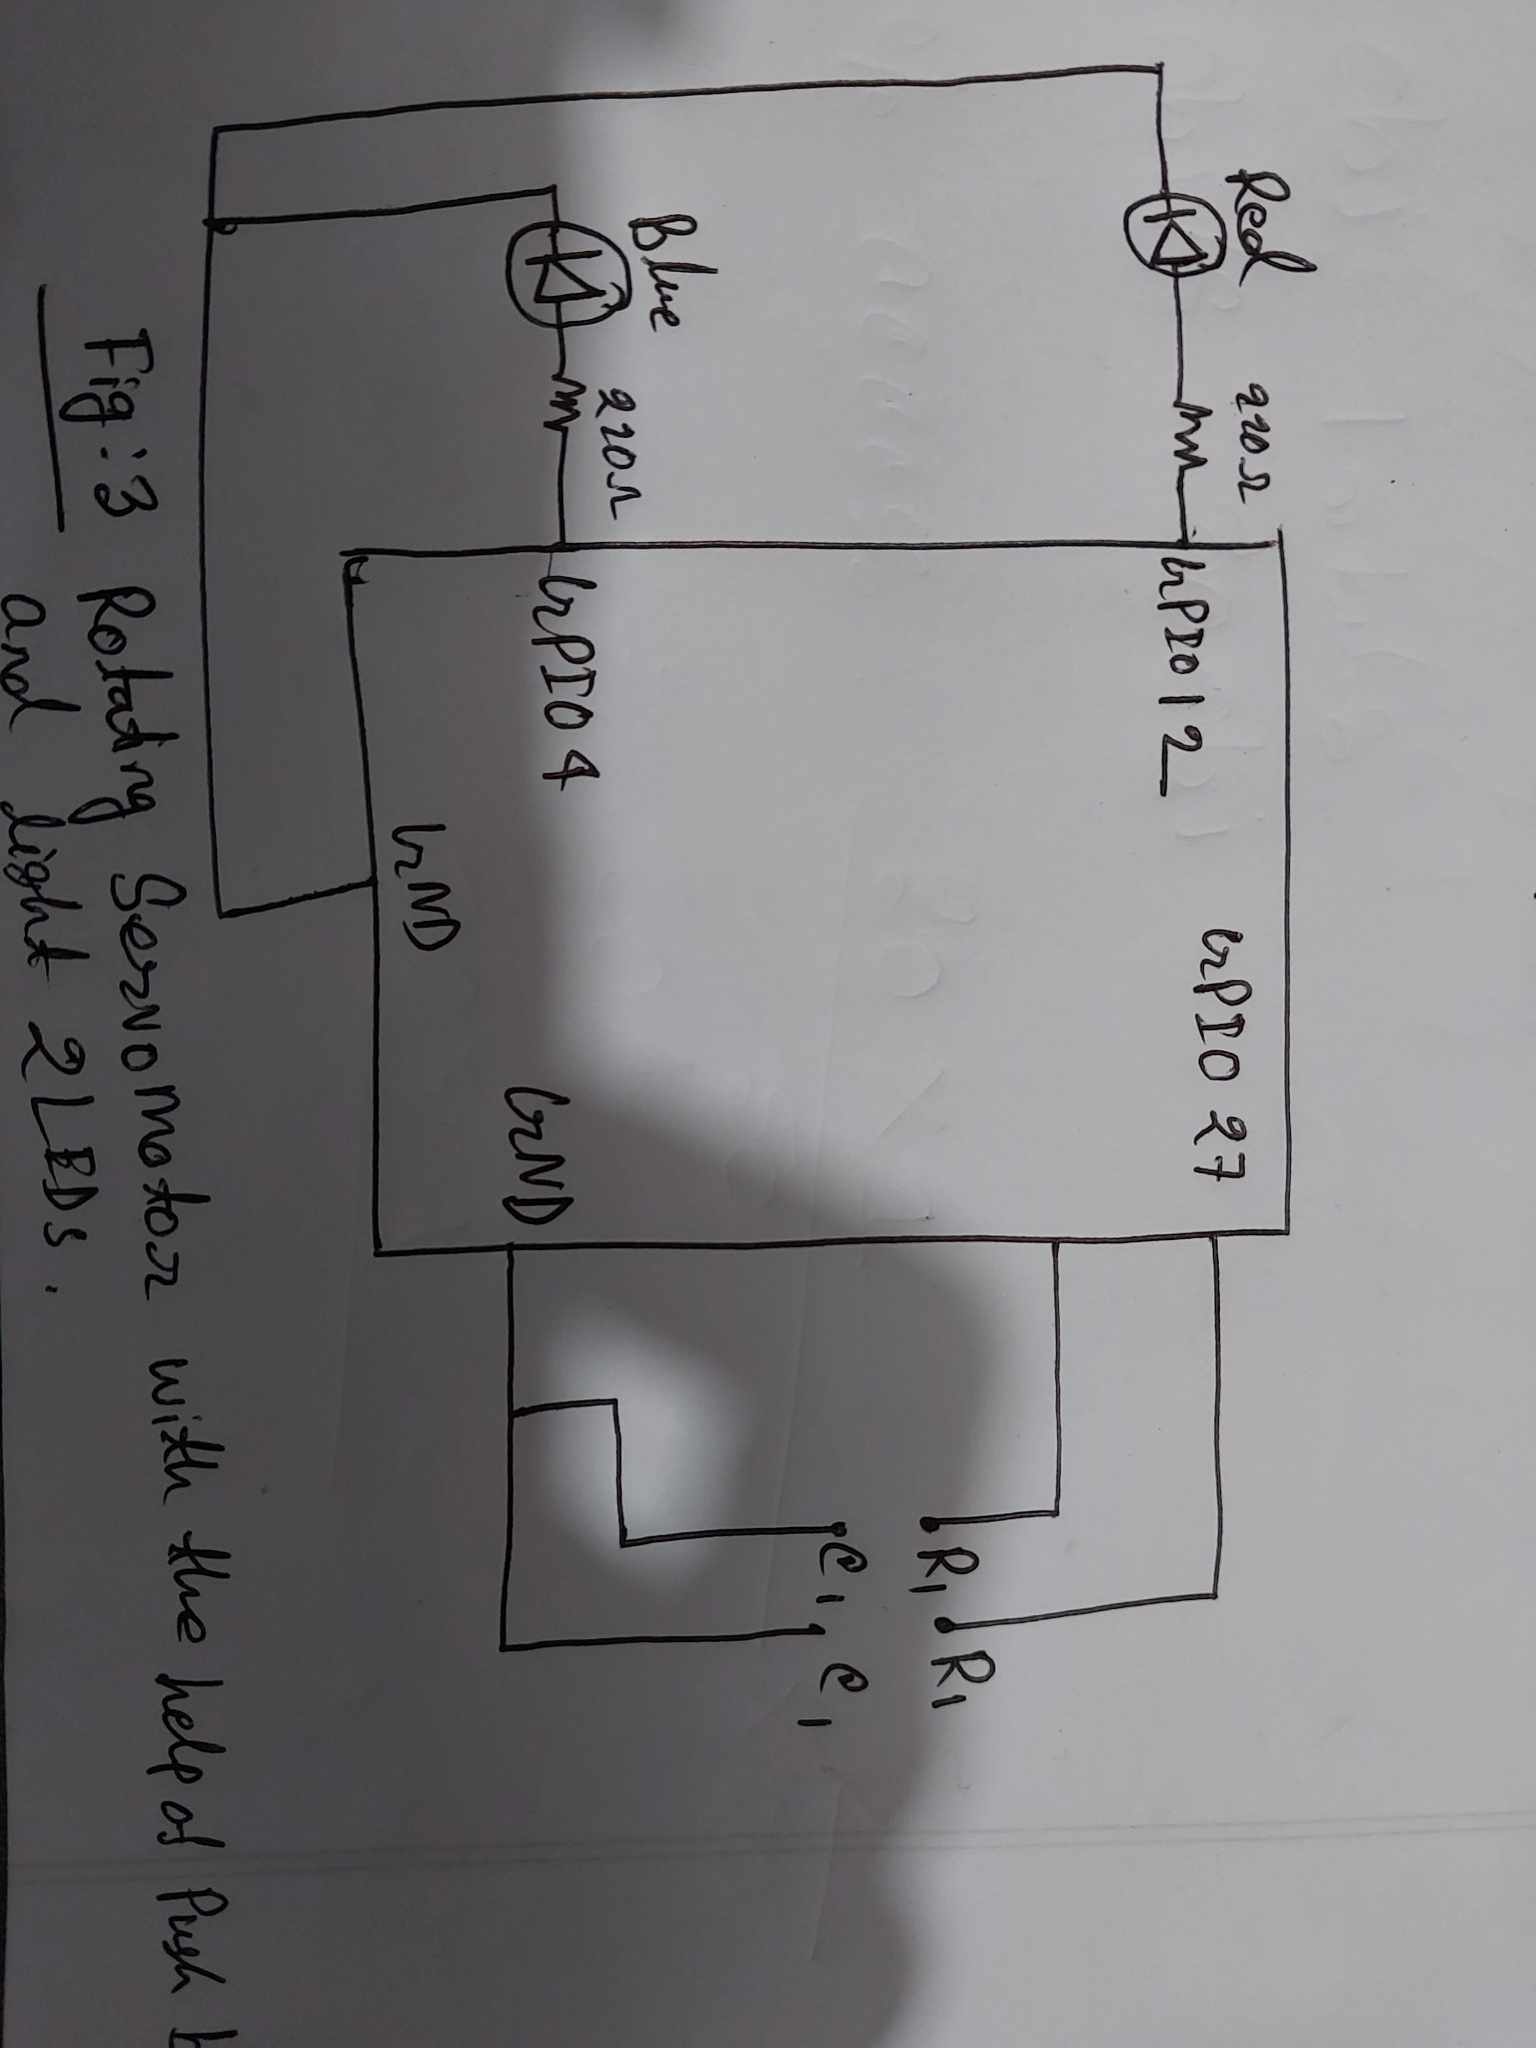 Red
220Ω
GPIO12
GPIO 27
R1
R1
C1
C1
Blue
220Ω
GPIO4
GND
GND
Fig:3 Rotating Servomotor with the help of Push b
and light 2LEDs.